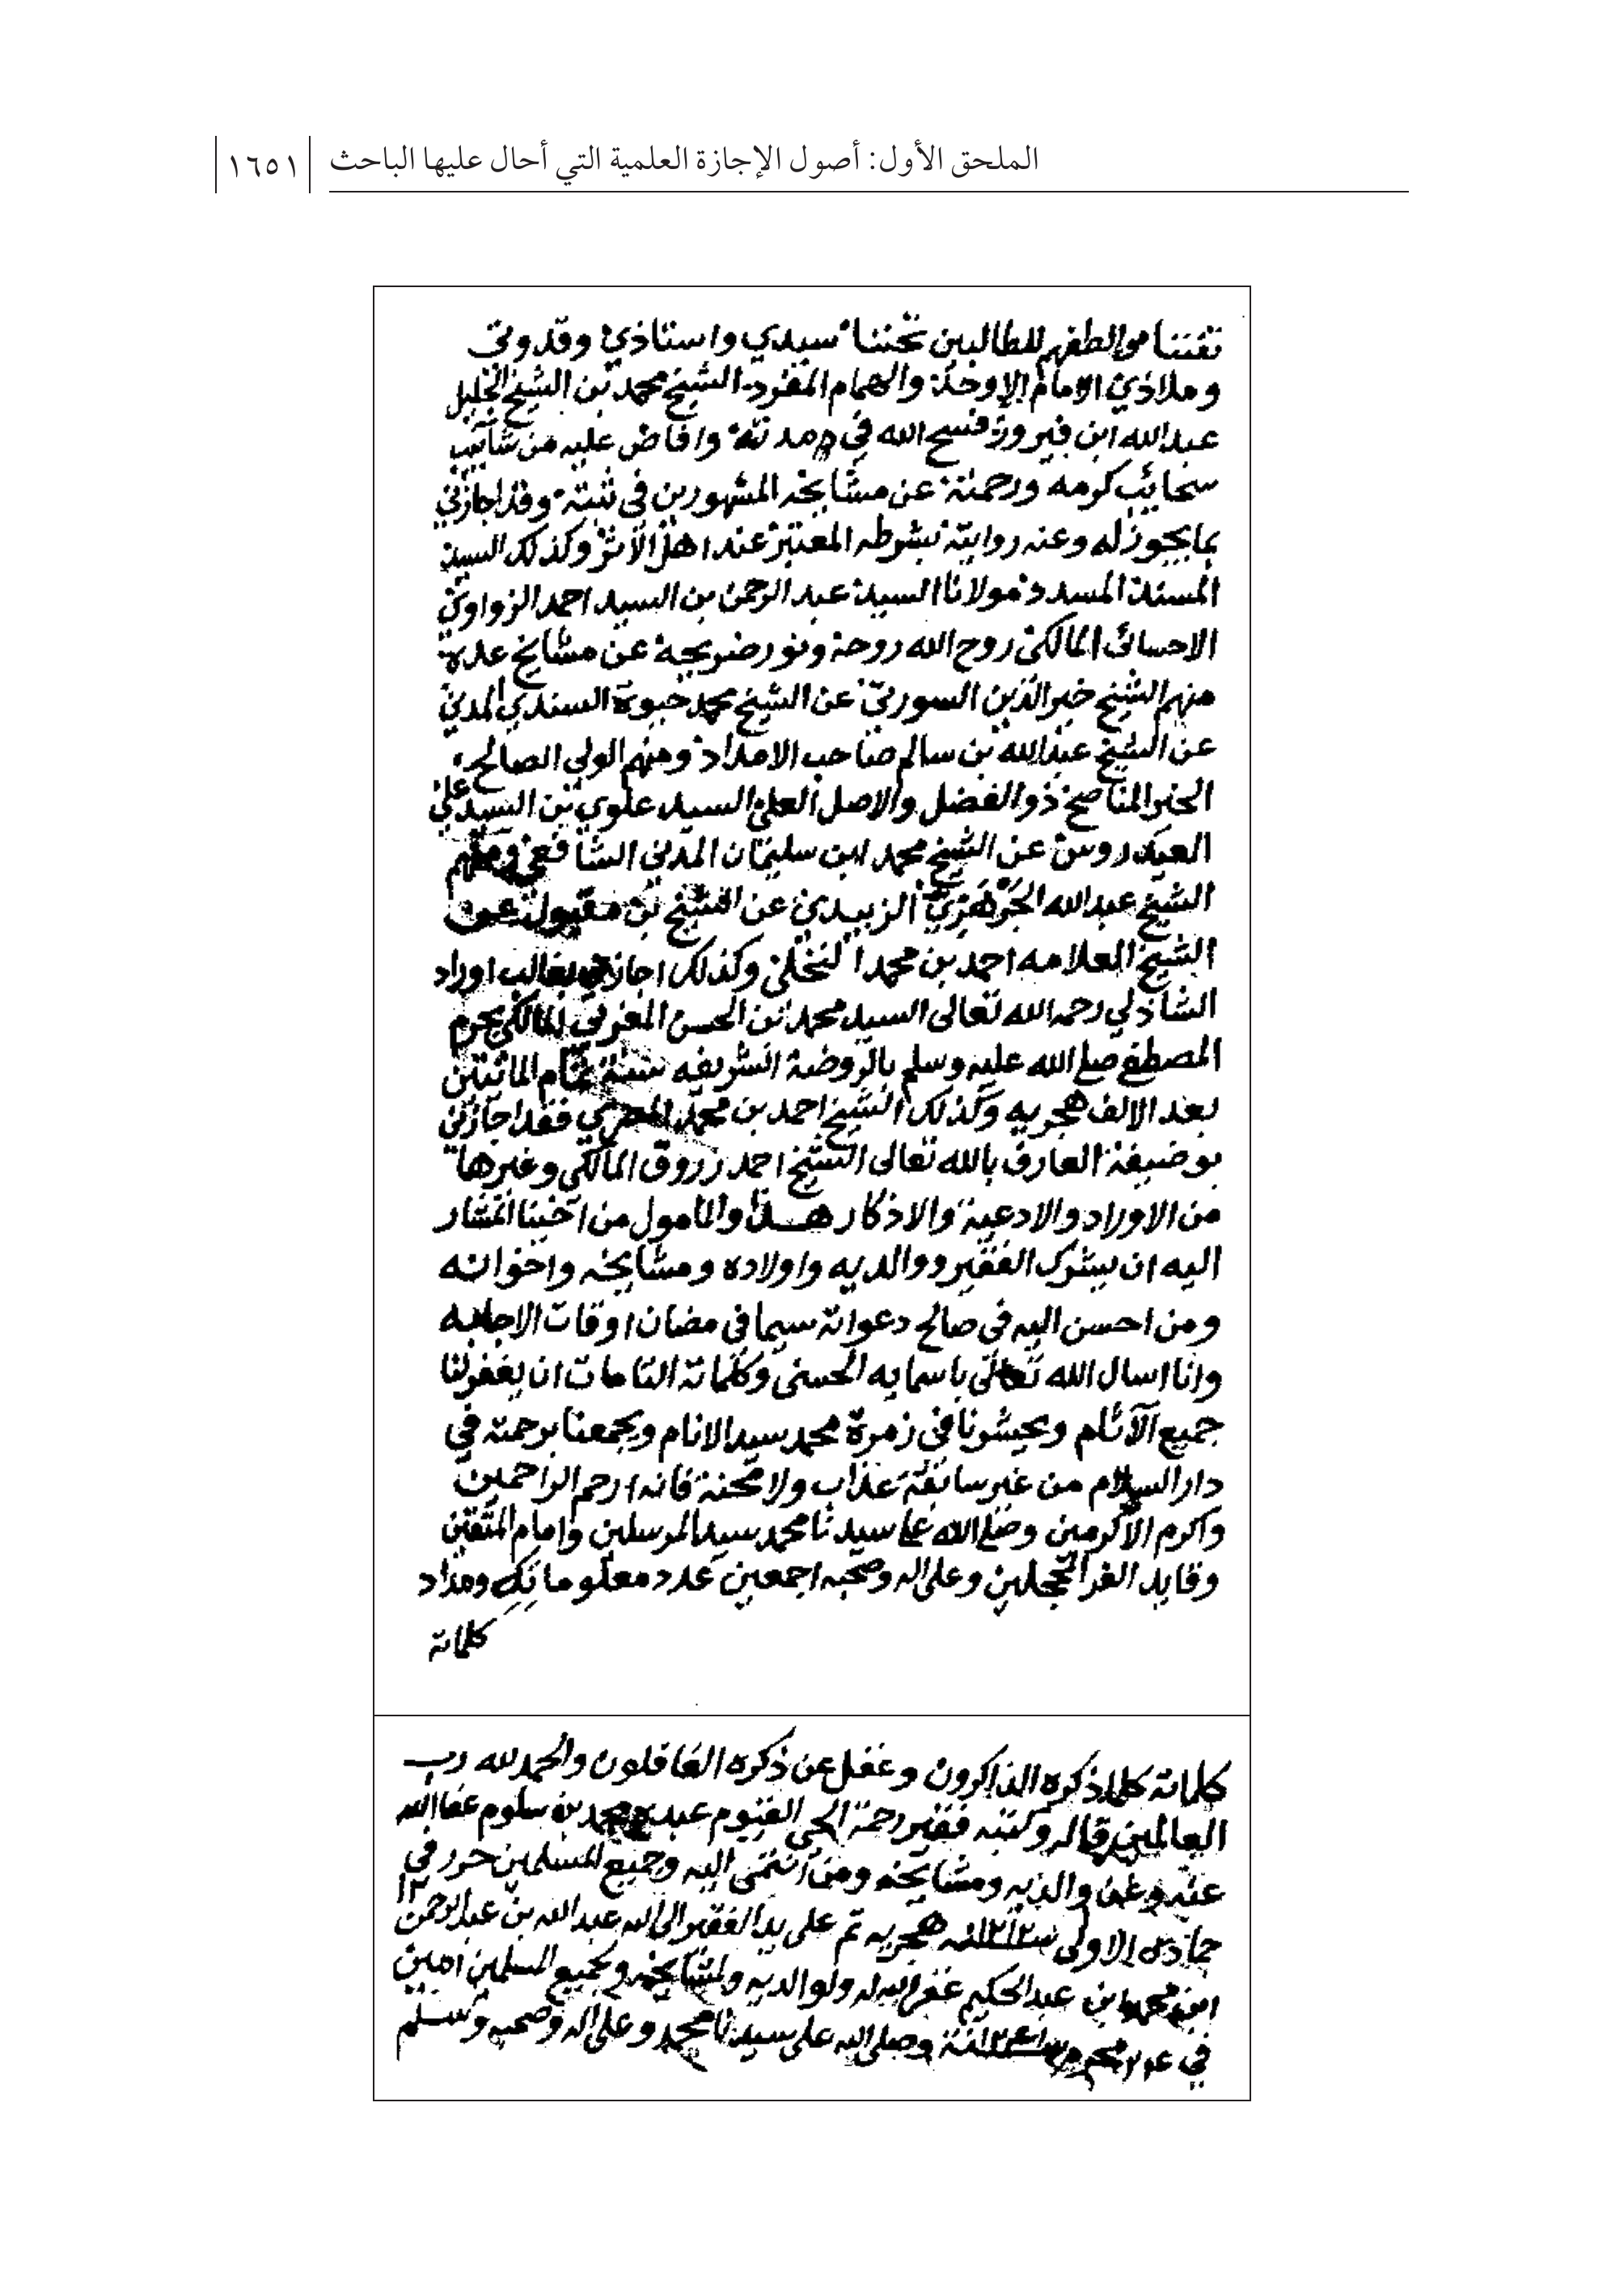 الملحق الأول: أصول الإجازة العلمية التي أحال عليها الباحث
١٦٥١
للطالبين تحننا سيدي واستاذي وقدوتي
وملاذي الامام الاوحد والهمام المفرد الشيخ محمد بن الشيخ الجليل
عبدالله ابن فيروز فسح الله في مدته وافاض عليه من شآبيب
سحائب كرمه ورحمته عن مشايخه المشهورين في ثبته وقد اجازني
بما يجوز له وعنه روايته بشرطه المعتبر عند اهل الاثر وكذلك السيد
المسند المسدد مولانا السيد عبد الرحمن بن السيد احمد الزواوي
الاحسائي المالكي روح الله روحه ونور ضريحه عن مشايخ عده
منهم الشيخ خير الدين السورتي عن الشيخ محمد حيوة السندي المدني
عن الشيخ عبدالله بن سالم صاحب الامداد ومنهم الولي الصالح
الناصح ذو الفضل والاصل العلي السيد علوي بن السيد علي
العيدروس عن الشيخ محمد ابن سليمان المدني الشافعي ومنهم
الشيخ عبدالله الجرهزي الزبيدي عن الشيخ بن مقبول عن
الشيخ العلامه احمد بن محمد النخلي وكذلك اجازني بغالب اوراد
الشاذلي رحمه الله تعالى السيد محمد بن الحسن المغربي المالكي بحرم
المصطفى صلى الله عليه وسلم بالروضة الشريفه سنة تمام المائتين
بعد الالف هجريه وكذلك الشيخ احمد بن محمد فقد اجازني
بوضيفة العارف بالله تعالى الشيخ احمد زروق المالكي وغيرها
من الاوراد والادعية والاذكار هذا والمامول من اخينا المشار
اليه ان يشرك الفقير ووالديه واولاده ومشايخه واخوانه
ومن احسن اليه في صالح دعواته سيما في مضان اوقات الاجابه
وانا اسال الله تعالى باسمايه الحسنى وكلماته التامات ان يغفر لنا
جميع الآثام ويحشرنا في زمرة محمد سيد الانام ويجمعنا برحمته في
دار السلام من غير سابقة عذاب ولا محنة فانه ارحم الراحمين
واكرم الاكرمين وصلى الله على سيدنا محمد سيد المرسلين وامام المتقين
وقايد الغر المحجلين وعلى اله وصحبه اجمعين عدد معلوماتك ومداد
كلماته
كلماته كلما ذكره الذاكرون وغفل عن ذكره الغافلون والحمد لله رب
العالمين قاله وكتبه فقير رحمة الحي القيوم عبده محمد بن سلوم عفا الله
عنه وعن والديه ومشايخه ومن انتمى اليه وجميع المسلمين حرر في ١٢
جمادى الاولى هجريه تم على يد الفقير الى الله عبدالله بن عبدالرحمن
ابن محمد ابن عبدالحكيم غفر الله له ولوالديه ولمشايخه ولجميع المسلمين امين
في محرم وصلى الله على سيدنا محمد وعلى اله وصحبه وسلم